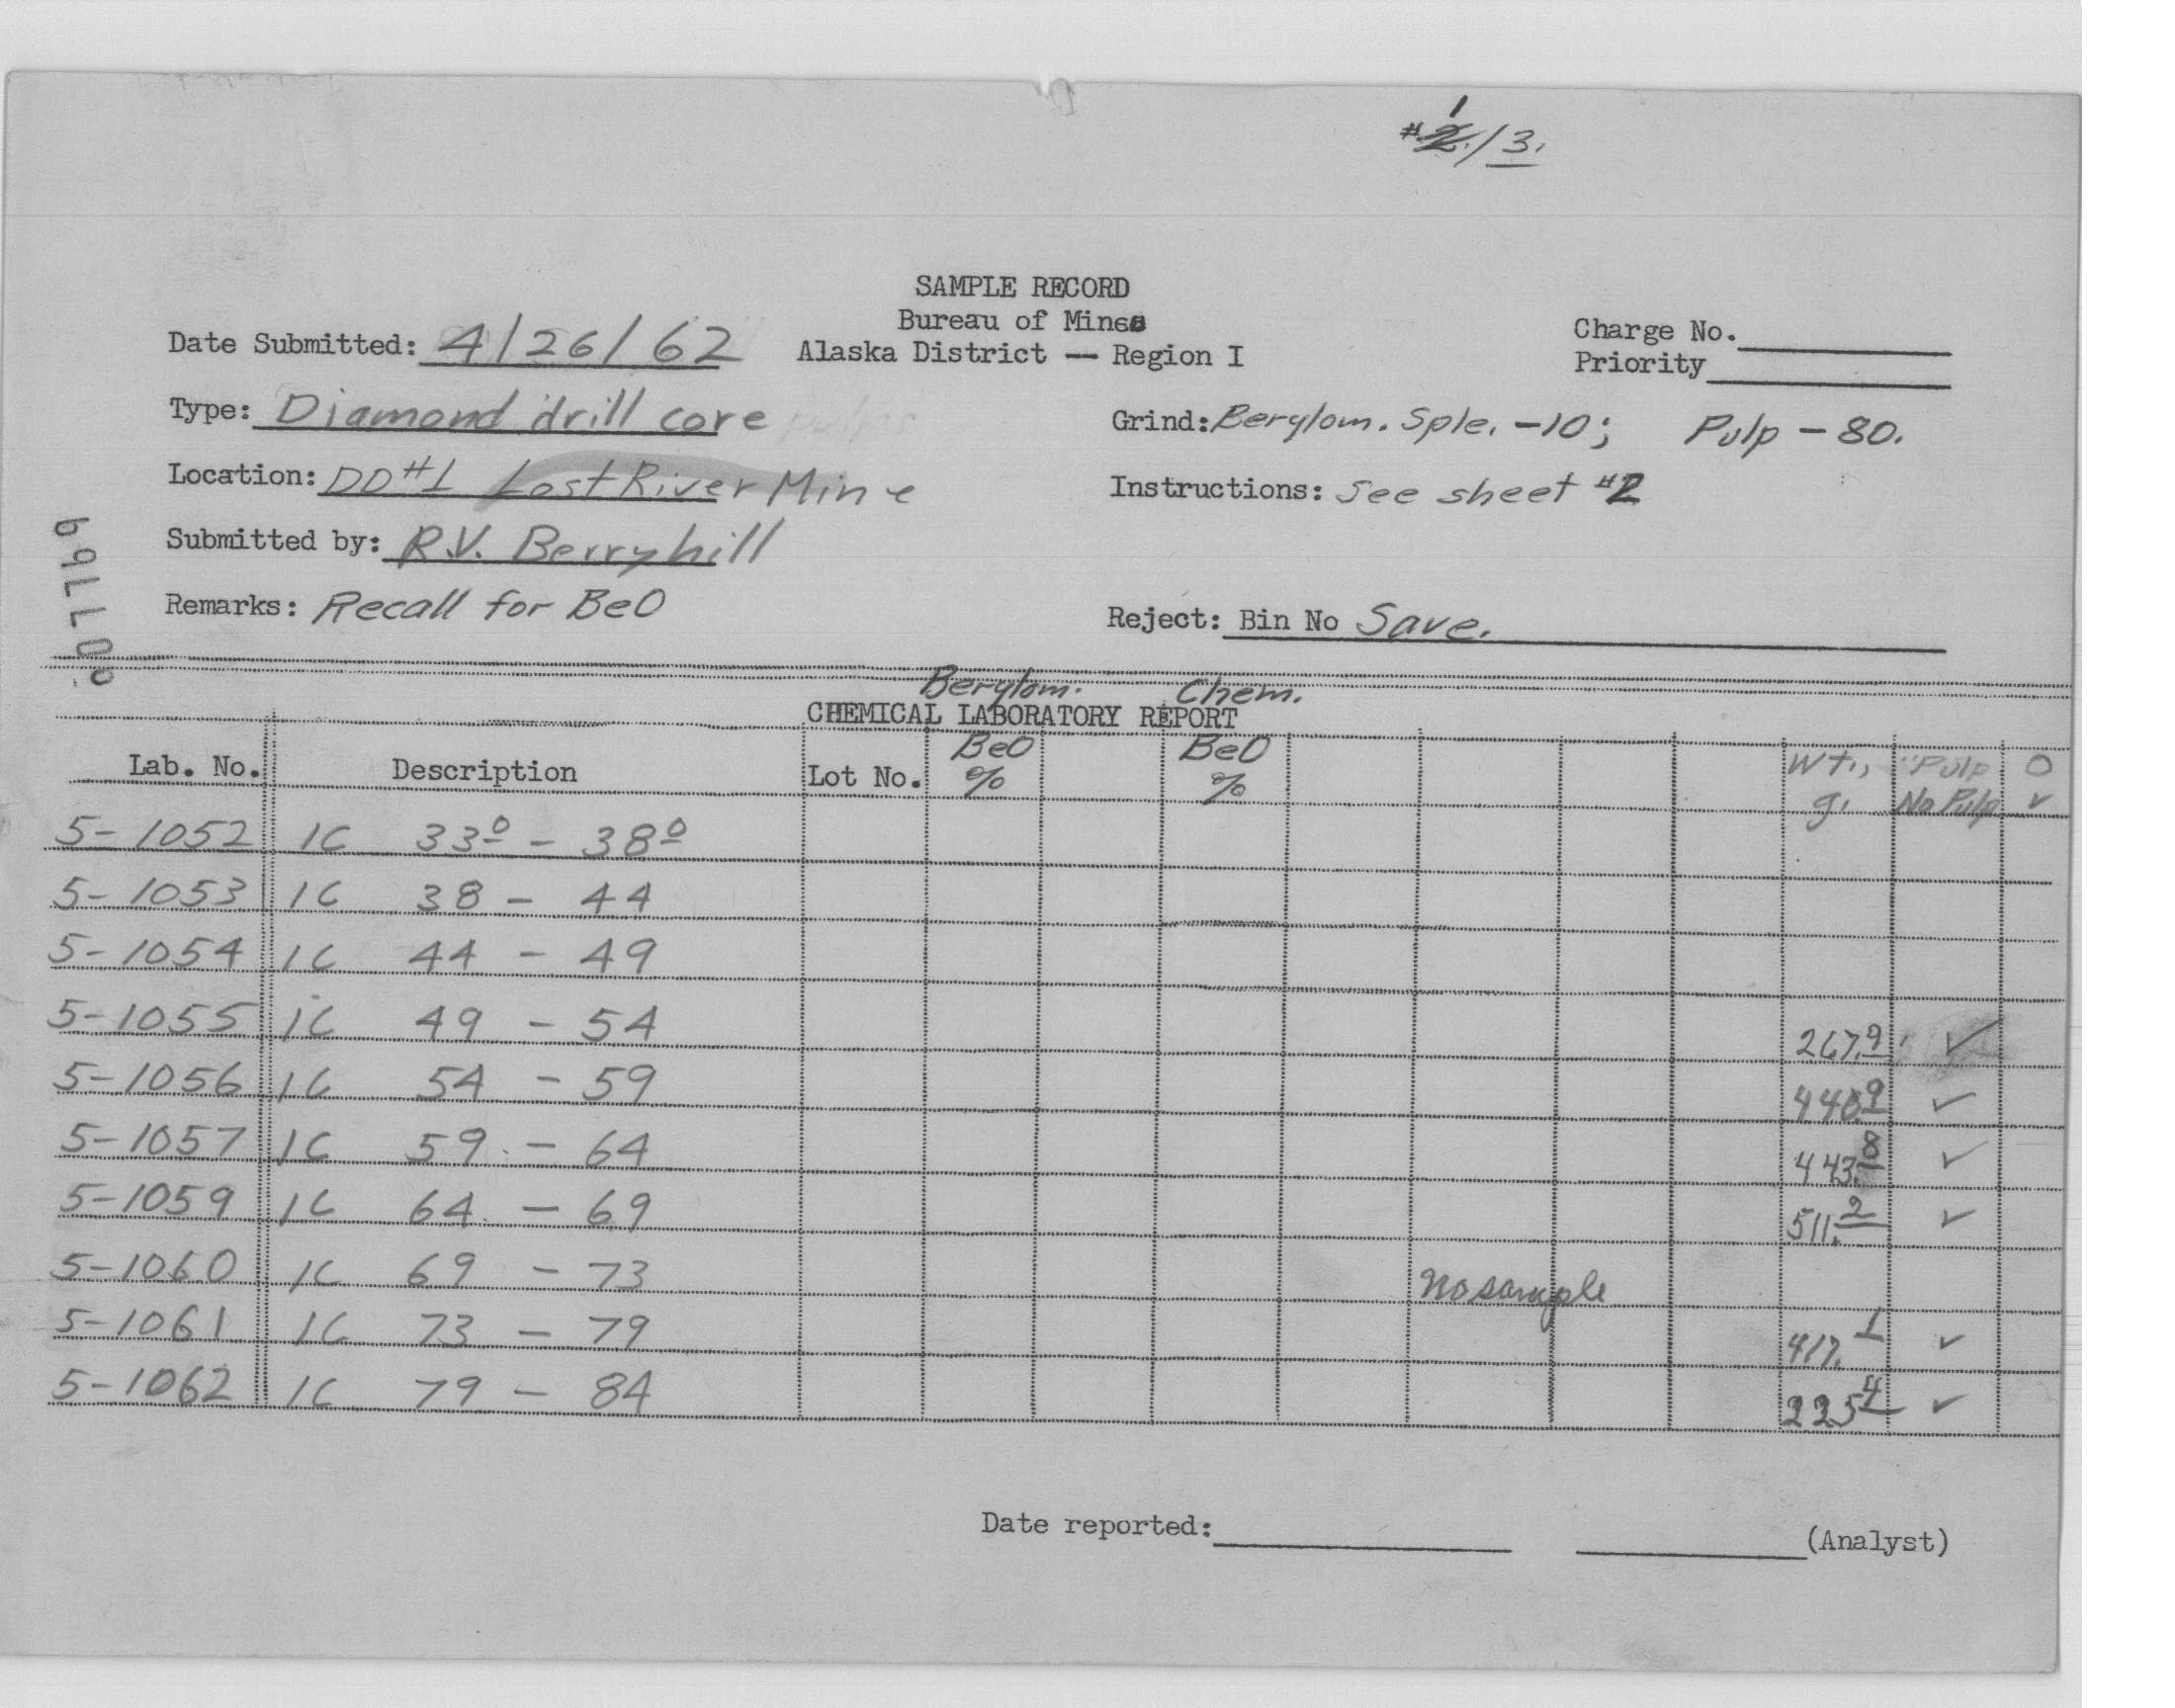 #1/3.
SAMPLE RECORD
Bureau of Mines
Alaska District — Region I
Date Submitted: 4/26/62
Charge No.
Priority
Type: Diamond drill core
Grind: Berylom. Sple. -10; Pulp - 80.
Location: DD#1 Lost River Mine
Instructions: See sheet #2
Submitted by: R.V. Berryhill
Remarks: Recall for BeO
Reject: Bin No Save.
Berylom. Chem.
CHEMICAL LABORATORY REPORT
Lab. No. Description Lot No. BeO % BeO % Wt., g. Pulp No Pulp O ✓
5-1052 1C 33⁰ - 38⁰
5-1053 1C 38 - 44
5-1054 1C 44 - 49
5-1055 1C 49 - 54 267.9 ✓
5-1056 1C 54 - 59 440.9 ✓
5-1057 1C 59 - 64 443.8 ✓
5-1059 1C 64 - 69 511.2 ✓
5-1060 1C 69 - 73 No sample
5-1061 1C 73 - 79 417.1 ✓
5-1062 1C 79 - 84 225.4 ✓
Date reported: (Analyst)